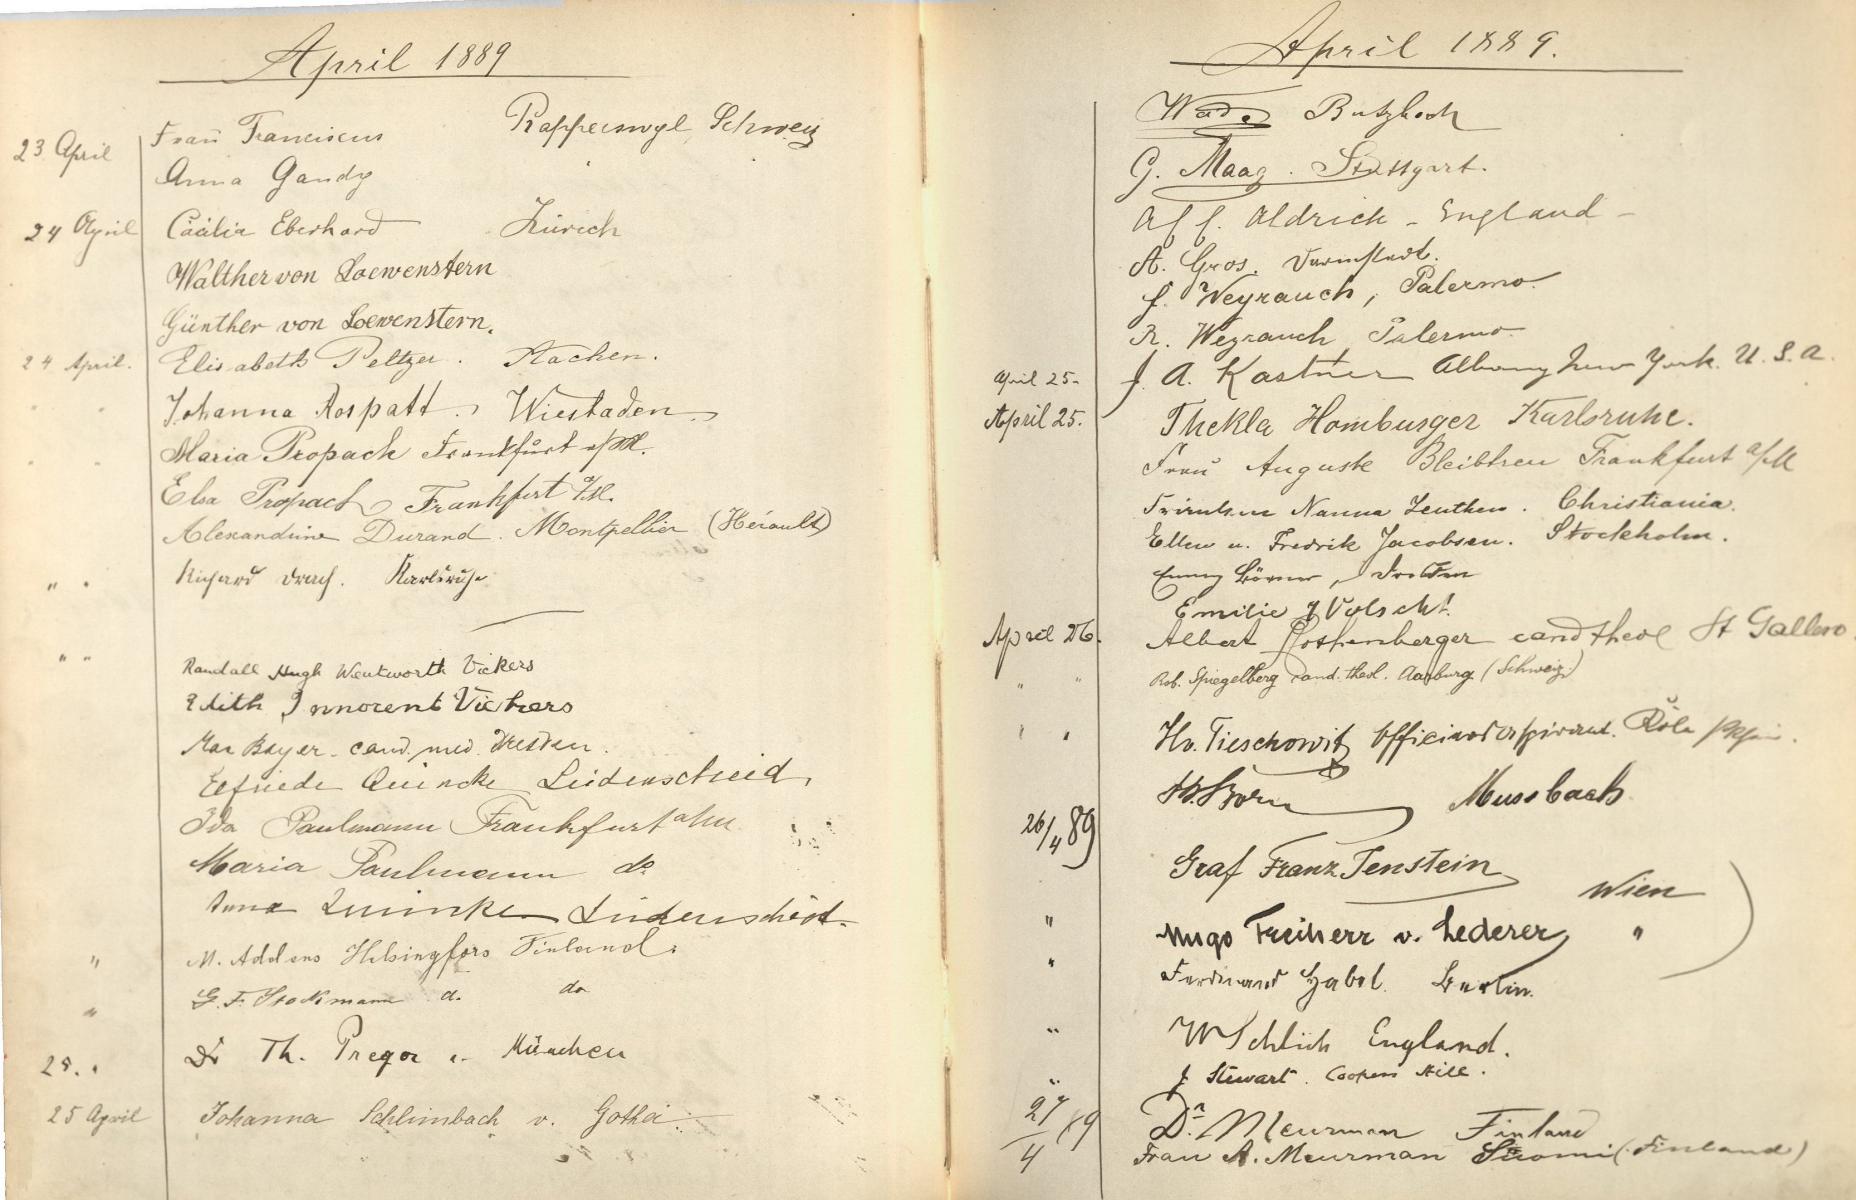 April 1889
23 April Frau Franciscus Rapperswyl, Schweiz
Anna Gandy
24 April Cäcilia Eberhard Zürich
Walther von Loewenstern
Günther von Loewenstern.
24 April. Elisabeth Peltzer. Aachen.
" " Johanna Rospatt. Wiesbaden
" " Maria Propach Frankfurt a/M.
Elsa Propach Frankfurt a/M.
Alexandrine Durand. Montpellier (Hérault)
" " Richard Drach. Karlsruhe
" " Randall Hugh Wentworth Vickers
Edith Innocent Vickers
Max Bayer cand. med. Dresden.
Elfriede Quincke Lüdenscheid,
Ida Paulmann Frankfurt a/M
Maria Paulmann do
Anna Quincke Lüdenscheid
" M. Helsingfors Finland.
" G. F. Stockmann d. do
25. " Dr Th. München
25 April Johanna Schlimbach v. Gotha.
April 1889.
Butzbach
G. Maag. Stuttgart.
Aldrich - England -
A. Gros. Darmstadt.
J. Weyrauch, Palermo.
R. Weyrauch Palermo
April 25- J. A. Kastner Albany New York. U. S. A.
April 25. Thekla Homburger Karlsruhe.
Frau Auguste Bleibtreu Frankfurt a/M
Nanna Christiania.
Ellen u. Fredrik Jacobsen. Stockholm.
Dresden
Emilie
April 26. Albert cand theol St Gallen
" " Rob. Spiegelberg cand. theol. Aarburg (Schweiz)
" " H v. Tieschowitz Köln
Born Mussbach
26/4 89 Graf Franz Wien
" Hugo Freiherr v. Lederer "
" Ferdinand Berlin.
" W Schlich England.
" J Stewart. Coopers Hill.
27/4 89 Dr. Meurman Finland
Frau A. Meurman Suomi (Finland)